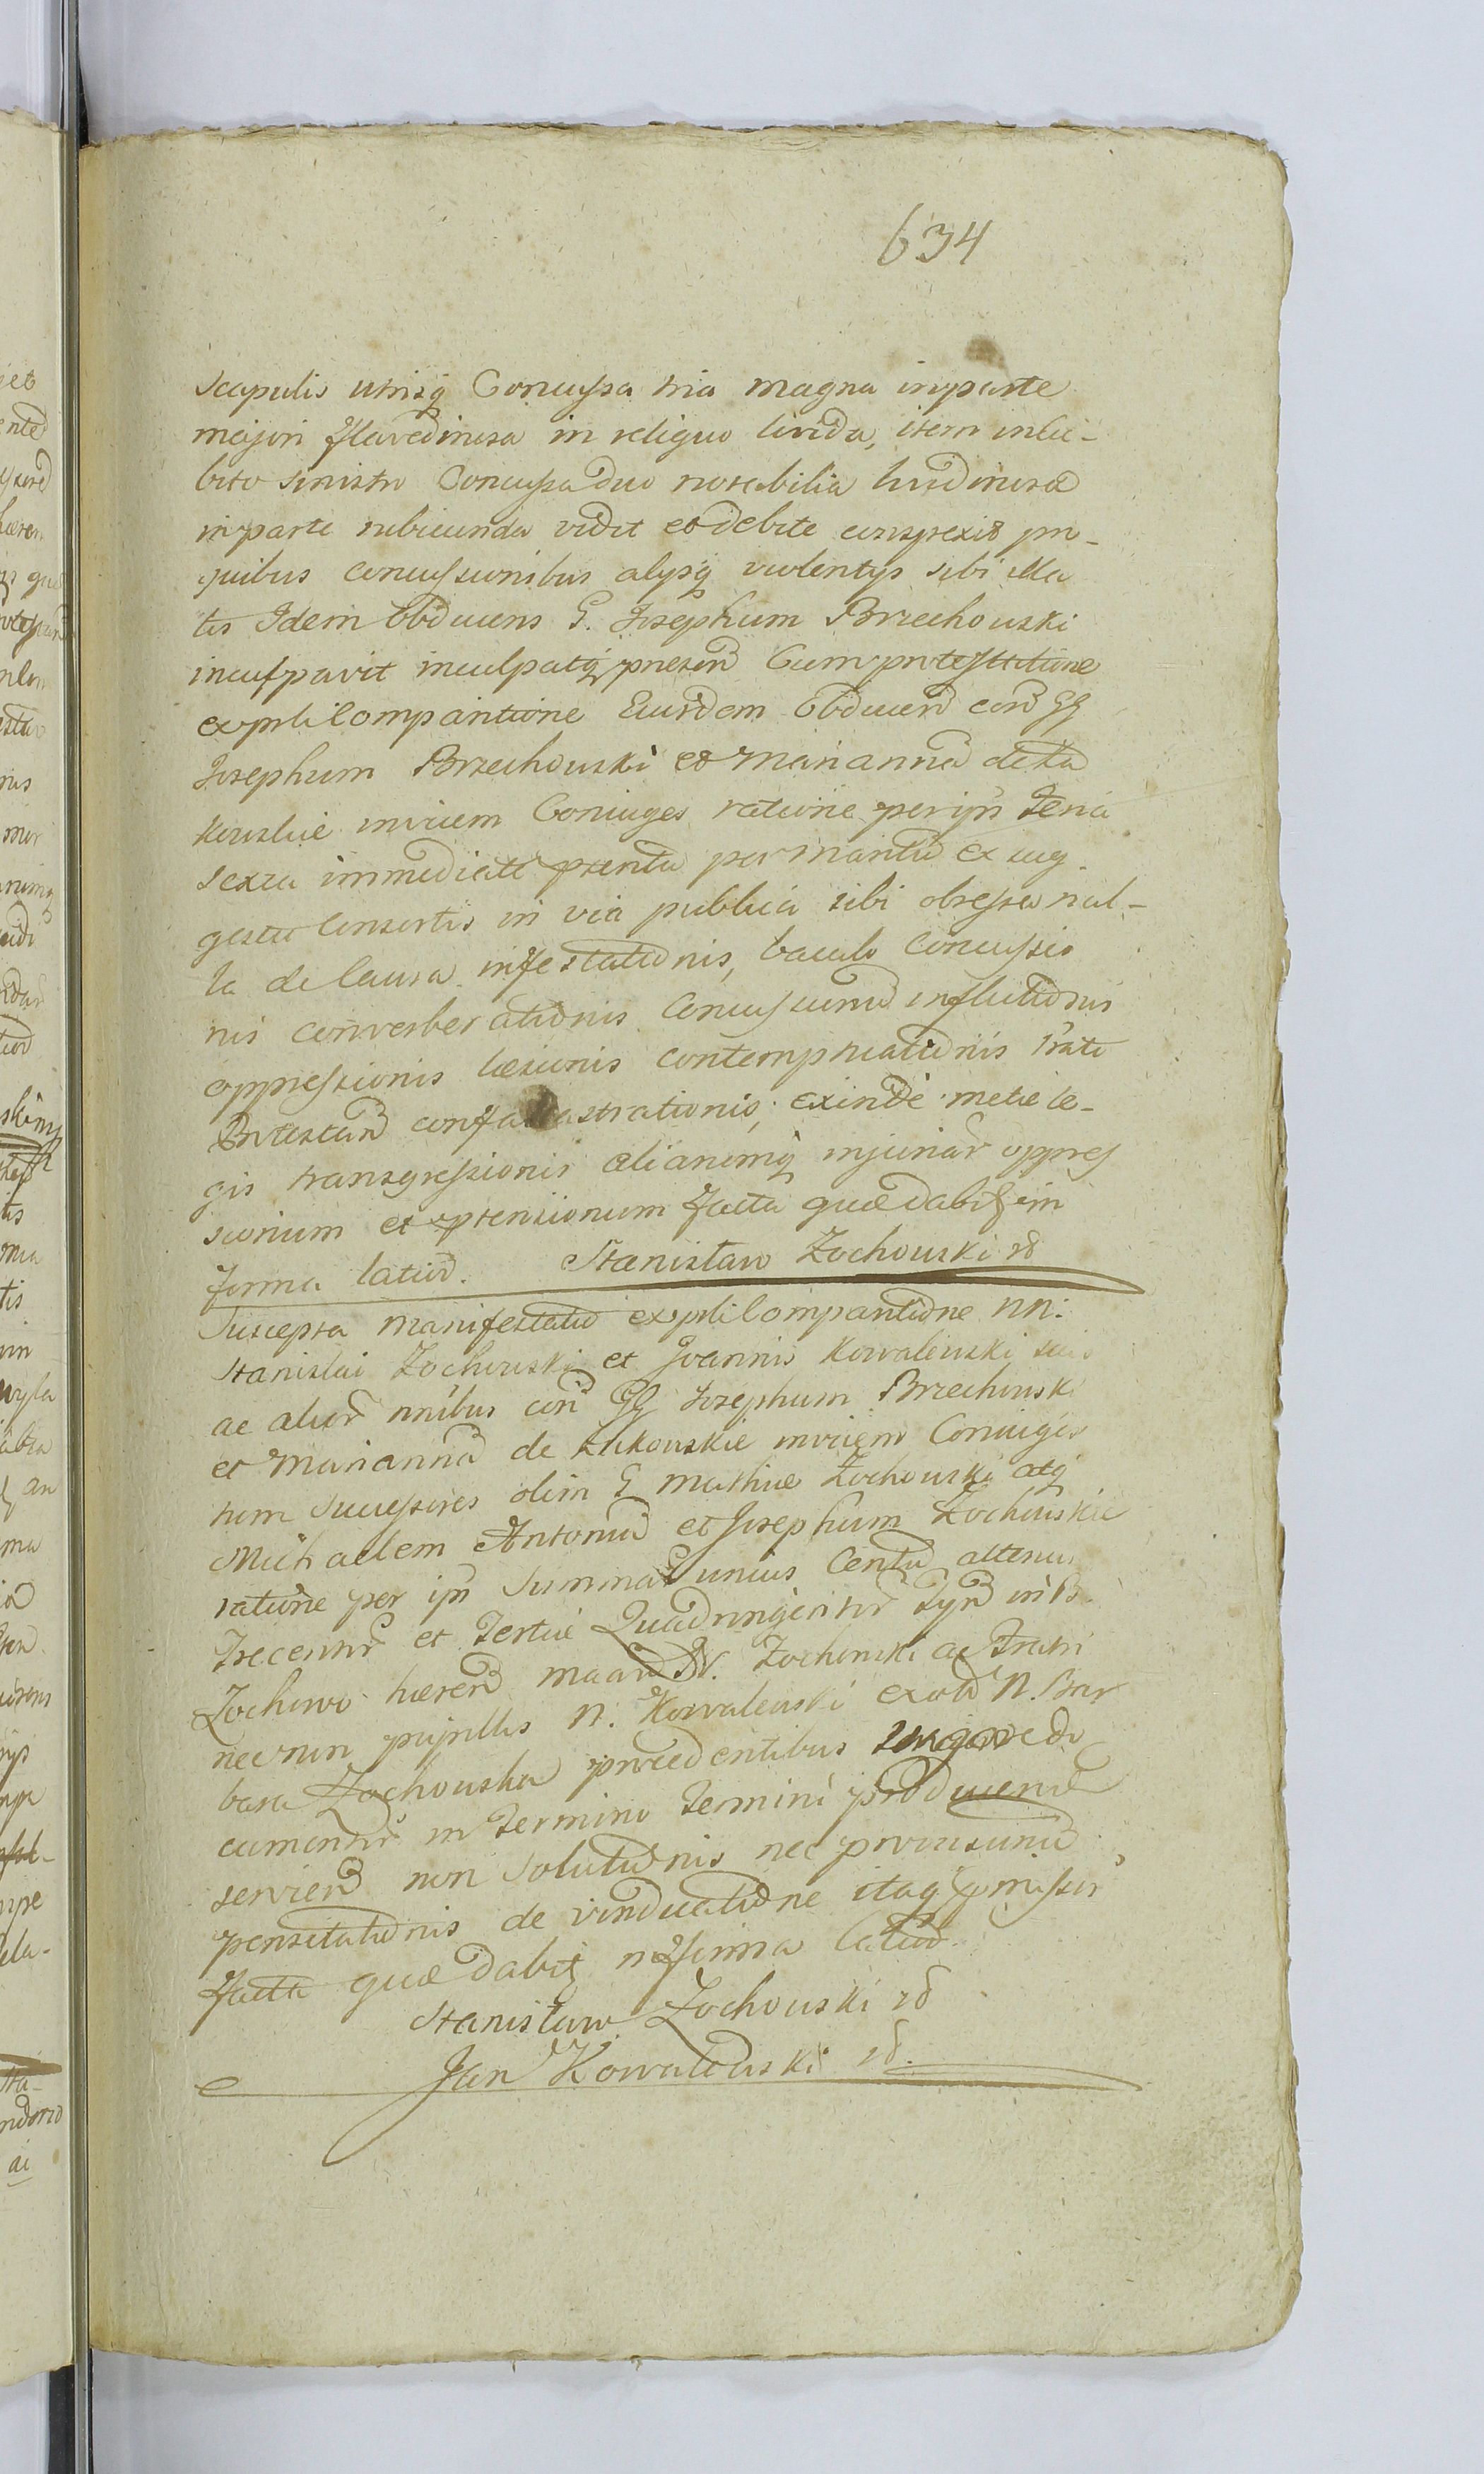 634
scapulis utrisq Concussa tria magna in parte
majori flavedinosa in reliquo livida, item in cu-
bito sinistro Concussa duo notabilia livedinosa
in parte rubicunda vidit et debite conspexit pro
quibus concussionibus alysq violentys sibi illa
tis Idem Obducens G. Josephum Brzechowski
inculpavit inculpatq presen Cum protestatione
ex prli Comparitione Eiusdem Obducen con GG
Josephum Brzechowski et Mariannã de Zu
kowskie invicem Coniuges ratione per ipsũ feria
sexta immediate prenta per Maritũ ex sug
gestu Consortis in via publica sibi obsesso nul-
la de Causa infestationis, baculo Concussio
nis converberationis Concussionũ inflictionis
oppressionis læsionis contemptuationis
Protestan exinde metæ le-
gis transgressionis aliarumq injuriar oppres
sionum et prensionum facta quæ dabit in
forma latior. Stanisław Zochowski
Suscepta manifestatio ex prli Comparitione NN:
Stanislai Zochowski et Joannis Kowalewski suis
ac alior nnibus con GG Josephum Brzechowski
et Mariannã de Zukowskie invicem Coniuges
tum Successores olim G Mathiæ Zochowski atq
Michaelem Antoniũ et Josephum Zochowskie
ratione per ipn Summar unius Centũ alterius
Trecentor et Tertiæ Quadringentor Tyn in B.
Zochowo hæren N. Zochowski ac
necnon pupillis N. Kowalewski N. Bar
bara Zochowska procedentibus do
cumentor in Termino Termini producend
servien non Solutionis nec provisionũ
pensitationis de vindicatione itaq pmissor
facta quæ dabit in forma latior
Stanisław Zochowski
Jan Kowalewski